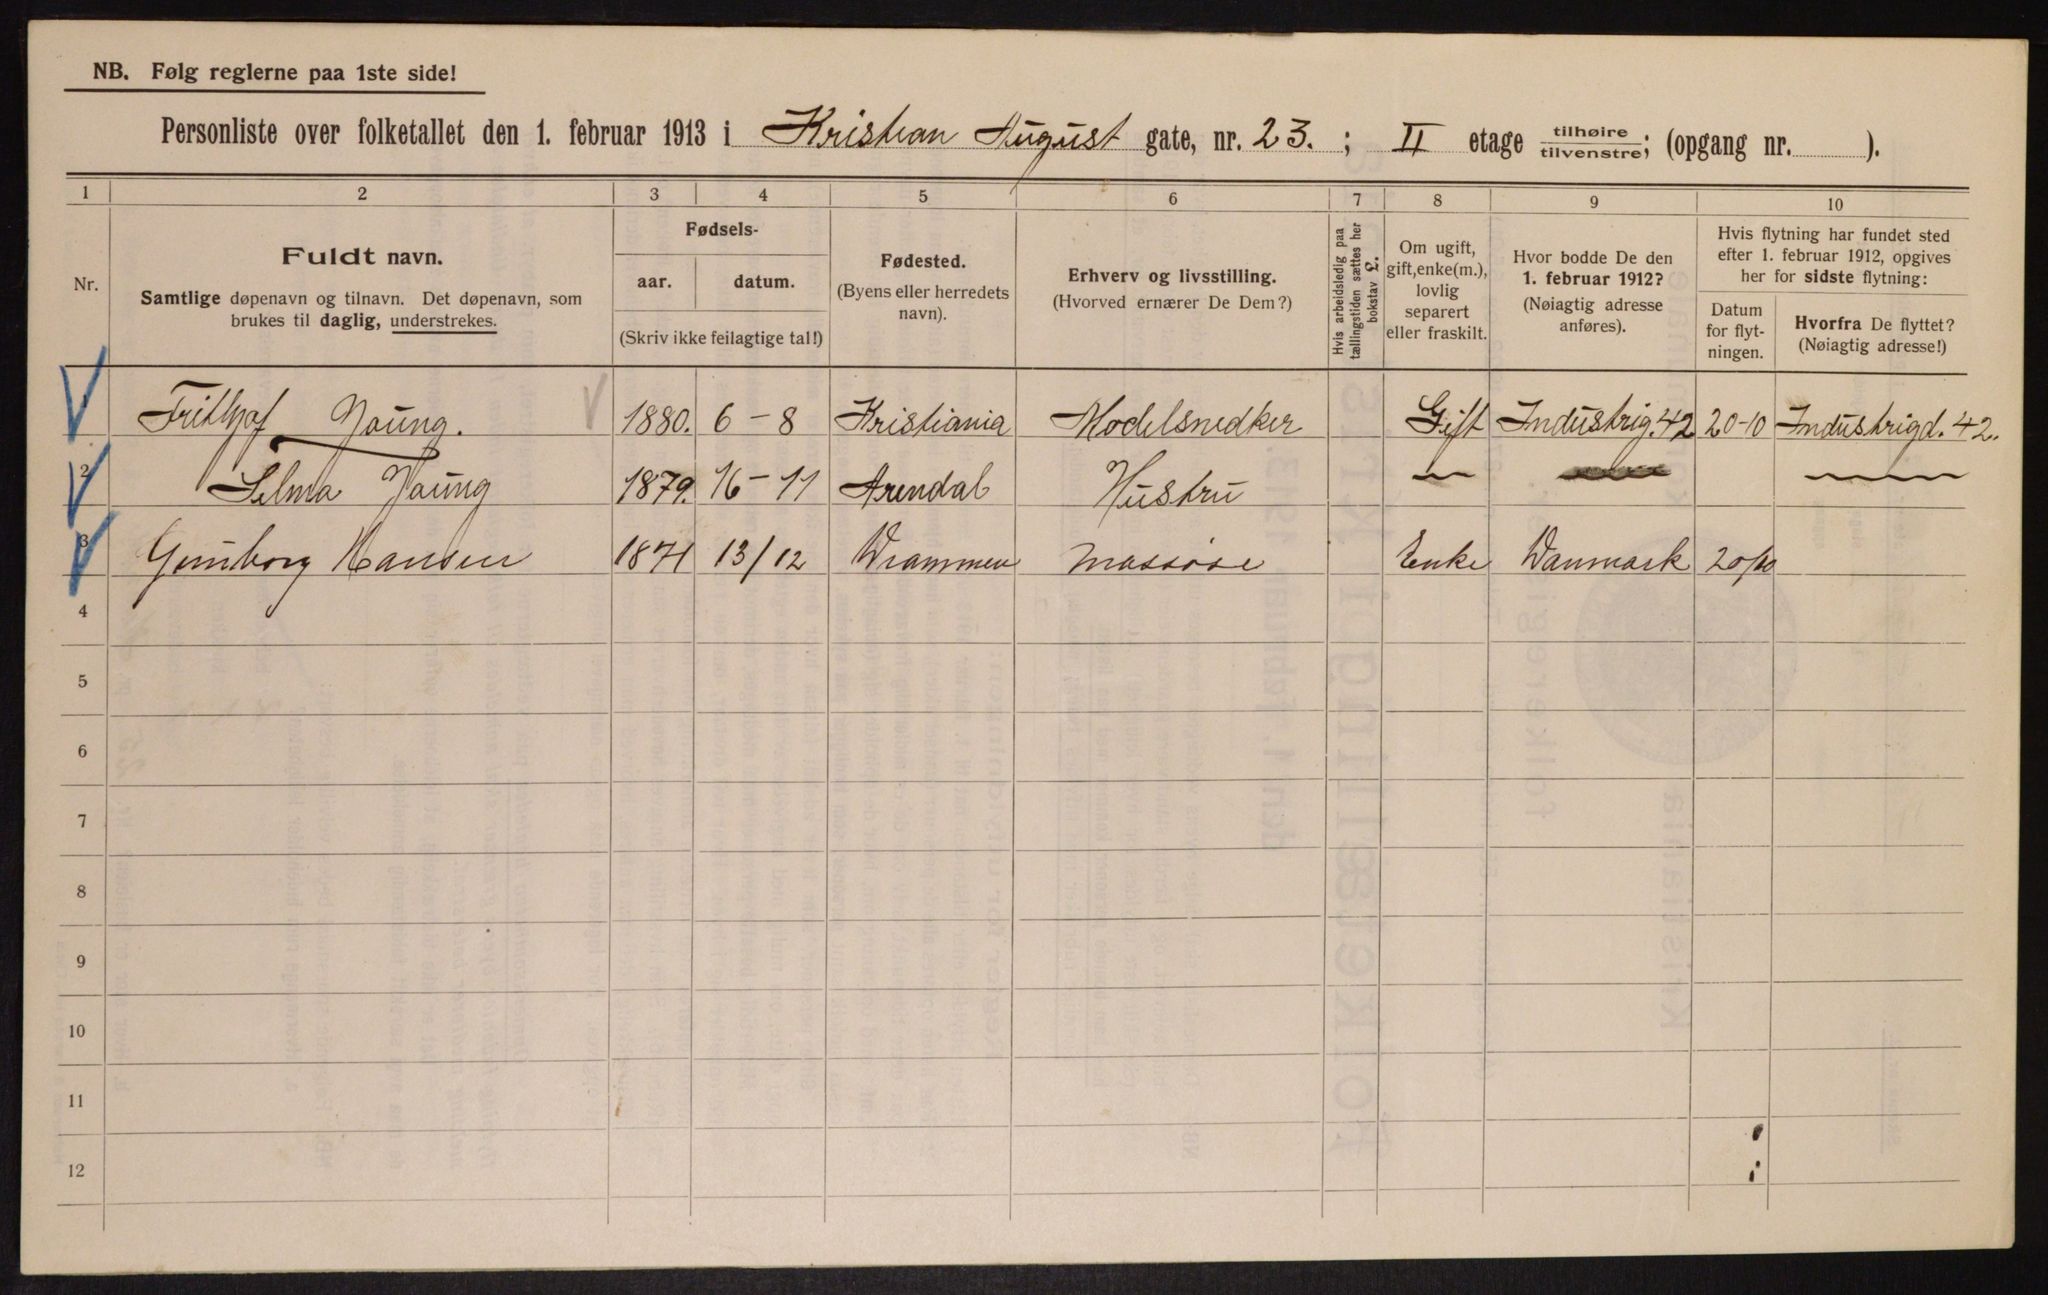 NB. Følg reglerne paa 1ste side!
Personliste over folketallet den 1. februar 1913 i Kristian August gate, nr. 23. ; II etage tilhøire / tilvenstre; (opgang nr. ).
1 2 3 4 5 6 7 8 9 10
Nr.
Fuldt navn.
Samtlige døpenavn og tilnavn. Det døpenavn, som
brukes til daglig, understrekes.
Fødsels-
aar. datum.
(Skriv ikke feilagtige tal!)
Fødested.
(Byens eller herredets
navn).
Erhverv og livsstilling.
(Hvorved ernærer De Dem?)
Hvis arbeidsledig paa
tællingstiden sættes her
bokstav L.
Om ugift,
gift, enke(m.),
lovlig
separert
eller fraskilt.
Hvor bodde De den
1. februar 1912?
(Nøiagtig adresse
anføres).
Hvis flytning har fundet sted
efter 1. februar 1912, opgives
her for sidste flytning:
Datum
for flyt-
ningen.
Hvorfra De flyttet?
(Nøiagtig adresse!)
1 Frithjof Young. 1880. 6 - 8 Kristiania Modelsnedker Gift Industrig. 42 20-10 Industrigd. 42.
2 Selma Young 1879. 16 - 11 Arendal Hustru
3 Hansen 1871 13/12 Drammen massøse Enke Danmark 20/10
4
5
6
7
8
9
10
11
12